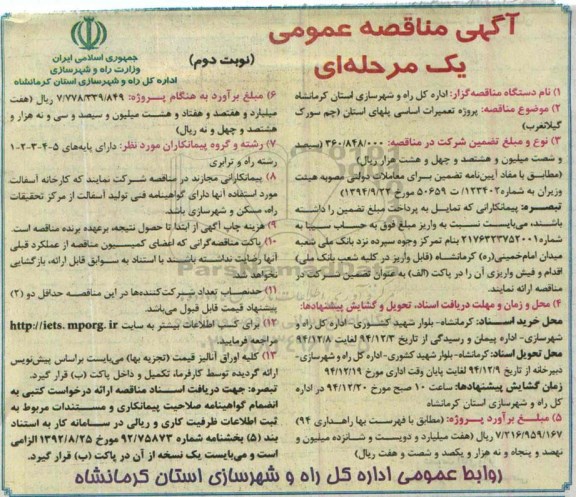 آگهی مناقصه عمومی
یک مرحله‌ای
(نوبت دوم)
جمهوری اسلامی ایران
وزارت راه و شهرسازی
اداره کل راه و شهرسازی استان کرمانشاه
۱) نام دستگاه مناقصه‌گزار: اداره کل راه و شهرسازی استان کرمانشاه
۲) موضوع مناقصه: پروژه تعمیرات اساسی پلهای استان (چم سورک
گیلانغرب)
۳) نوع و مبلغ تضمین شرکت در مناقصه: ۳۶۰/۸۴۸/۰۰۰ (سیصد
و شصت میلیون و هشتصد و چهل و هشت هزار ریال)
(مطابق با مفاد آیین‌نامه تضمین برای معاملات دولتی مصوبه هیئت
وزیران به شماره ۱۲۳۴۰۲/ت ۵۰۶۵۹ مورخ ۱۳۹۴/۹/۲۲)
تبصره: پیمانکارانی که تمایل به پرداخت مبلغ تضمین را داشته
باشند، می‌بایست نسبت به واریز مبلغ فوق به حساب سیبا به
شماره ۲۱۷۶۴۲۳۷۵۲۰۰۱ بنام تمرکز وجوه سپرده نزد بانک ملی شعبه
میدان امام‌خمینی(ره) کرمانشاه (قابل واریز در کلیه شعب بانک ملی)
اقدام و فیش واریزی آن را در پاکت (الف) به عنوان تضمین شرکت در
مناقصه ارائه نمایند.
۴) محل و زمان و مهلت دریافت اسناد، تحویل و گشایش پیشنهادها:
محل خرید اسناد: کرمانشاه- بلوار شهید کشوری- اداره کل راه و
شهرسازی- اداره پیمان و رسیدگی از تاریخ ۹۴/۱۲/۳ لغایت ۹۴/۱۲/۸
محل تحویل اسناد: کرمانشاه- بلوار شهید کشوری- اداره کل راه و شهرسازی-
دبیرخانه از تاریخ ۹۴/۱۲/۹ لغایت پایان وقت اداری مورخ ۹۴/۱۲/۱۹
زمان گشایش پیشنهادها: ساعت ۱۰ صبح مورخ ۹۴/۱۲/۲۰ در اداره
کل راه و شهرسازی استان کرمانشاه
۵) مبلغ برآورد پروژه: (مطابق با فهرست بها راهداری ۹۴)
۷/۲۱۶/۹۵۹/۱۶۷ ریال (هفت میلیارد و دویست و شانزده میلیون و
نهصد و پنجاه و نه هزار و یکصد و شصت و هفت ریال)
۶) مبلغ برآورد به هنگام پروژه: ۷/۷۷۸/۳۳۹/۸۴۹ ریال (هفت
میلیارد و هفتصد و هفتاد و هشت میلیون و سیصد و سی و نه هزار و
هشتصد و چهل و نه ریال)
۷) رشته و گروه پیمانکاران مورد نظر: دارای پایه‌های ۵-۴-۳-۲-۱
رشته راه و ترابری
۸) پیمانکارانی مجازند در مناقصه شرکت نمایند که کارخانه آسفالت
مورد استفاده آنها دارای گواهینامه فنی تولید آسفالت از مرکز تحقیقات
راه، مسکن و شهرسازی باشد.
۹) هزینه چاپ آگهی از ابتدا تا حصول نتیجه، برعهده برنده مناقصه است
۱۰) پاکت مناقصه‌گرانی که اعضای کمیسیون مناقصه از عملکرد قبلی
آنها رضایت نداشته باشند با استناد به سوابق قابل ارائه، بازگشایی
نخواهد شد.
۱۱) حدنصاب تعداد شرکت‌کننده‌ها در این مناقصه حداقل دو (۲)
پیشنهاد قیمت قابل قبول می‌باشد.
۱۲) برای کسب اطلاعات بیشتر به سایت http://iets. mporg. ir
مراجعه فرمایید.
۱۳) کلیه اوراق آنالیز قیمت (تجزیه بها) می‌بایست براساس پیش‌نویس
ارائه گردیده توسط کارفرما، تکمیل و داخل پاکت (ب) قرار گیرد.
تبصره: جهت دریافت اسناد مناقصه ارائه درخواست کتبی به
انضمام گواهینامه صلاحیت پیمانکاری و مستندات مربوط به
ثبت اطلاعات ظرفیت کاری و ریالی در سامانه کار به استناد
بند (۵) بخشنامه شماره ۹۲/۷۵۸۷۳ مورخ ۱۳۹۲/۸/۲۵ الزامی
است و می‌بایست یک نسخه از آن در پاکت (ب) قرار گیرد.
روابط عمومی اداره کل راه و شهرسازی استان کرمانشاه